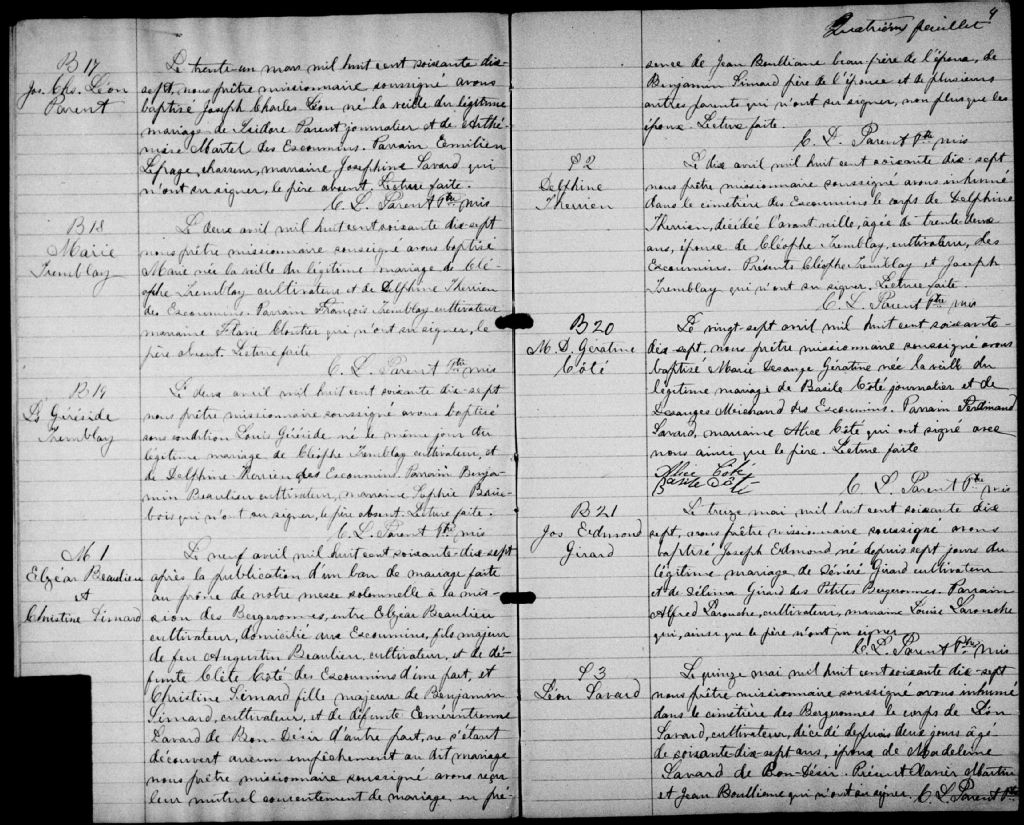 B 17
Jos. Chs. Léon
Parent
Le trente-un mars mil huit cent soixante dix-
sept, nous prêtre missionnaire soussigné avons
baptisé Joseph Charles Léon né la veille du légitime
mariage de Isidore Parent journalier et de Arthé-
mise Martel des Escoumins. Parrain Emilien
Lepage, chasseur, marraine Josephine Savard qui
n'ont su signer, le père absent. Lecture faite.
C. L. Parent Ptre mis
B 18
Marie
Tremblay
Le deux avril mil huit cent soixante dix-sept
nous prêtre missionnaire soussigné avons baptisé
Marie née la veille du légitime mariage de Clé-
ophe Tremblay cultivateur et de Delphine Therrien
des Escoumins. Parrain François Tremblay cultivateur
marraine Flavie Cloutier qui n'ont su signer, le
père absent. Lecture faite
C. L. Parent Ptre mis
B 19
Ls Géréside
Tremblay
Le deux avril mil huit cent soixante dix-sept
nous prêtre missionnaire soussigné avons baptisé
sous condition Louis Géréside né le même jour du
légitime mariage de Cléophe Tremblay cultivateur, et
de Delphine Therrien des Escoumins. Parrain Benja-
min Beaulieu cultivateur, marraine Sophie Brise-
bois qui n'ont su signer, le père absent. Lecture faite.
C. L. Parent Ptre mis
M 1
Elzéar Beaulieu
et
Christine Simard
Le neuf avril mil huit cent soixante-dix-sept
après la publication d'un ban de mariage faite
au prône de notre messe solennelle à la mis-
sion des Bergeronnes, entre Elzéar Beaulieu
cultivateur, domicilié aux Escoumins, fils majeur
de feu Augustin Beaulieu, cultivateur, et de dé-
funte Clète Coté des Escoumins d'une part, et
Christine Simard fille majeure de Benjamin
Simard, cultivateur, et de défunte Emérentienne
Savard de Bon-Désir d'autre part, ne s'étant
découvert aucun empêchement au dit mariage
nous prêtre missionnaire soussigné avons reçu
leur mutuel consentement de mariage en pré-
4
Quatrième feuillet
sence de Jean Boulliane beau frère de l'épouse, de
Benjamin Simard père de l'épouse et de plusieurs
autres parents qui n'ont su signer, non plus que les
époux. Lecture faite.
C. L. Parent Ptre mis
S 2
Delphine
Therrien
Le dix avril mil huit cent soixante dix-sept
nous prêtre missionnaire soussigné avons inhumé
dans le cimetière des Escoumins le corps de Delphine
Therrien, décédée l'avant-veille, âgée de trente deux
ans, épouse de Cléophe Tremblay, cultivateur, des
Escoumins. Présents Cléophe Tremblay et Joseph
Tremblay qui n'ont su signer. Lecture faite.
C. L. Parent Ptre mis
B 20
M. D. Gératine
Côté
Le vingt-sept avril mil huit cent soixante-
dix-sept, nous prêtre missionnaire soussigné avons
baptisé Marie Desange Gératine née la veille du
légitime mariage de Basile Côté journalier et de
Desanges Maichand des Escoumins. Parrain Ferdinand
Savard, marraine Alice Côté qui ont signé avec
nous ainsi que le père. Lecture faite
Alice Côté
Basile Côté
C. L. Parent Ptre mis
B 21
Jos Edmond
Girard
Le treize mai mil huit cent soixante dix
sept, nous prêtre missionnaire soussigné avons
baptisé Joseph Edmond né depuis sept jours du
légitime mariage de Sénéré Girard cultivateur
et de Sélima Girard des Petites Bergeronnes. Parrain
Alfred Larouche, cultivateur, marraine Louise Larouche
qui, ainsi que le père n'ont su signer.
C. L. Parent Ptre mis
S 3
Léon Savard
Le quinze mai mil huit cent soixante dix-sept
nous prêtre missionnaire soussigné avons inhumé
dans le cimetière des Bergeronnes le corps de Léon
Savard, cultivateur, décédé depuis deux jours âgé
de soixante-dix-sept ans, époux de Madeleine
Savard de Bon-Désir. Présent Xavier Martin
et Jean Boulliane qui n'ont su signer. C. L. Parent Ptre